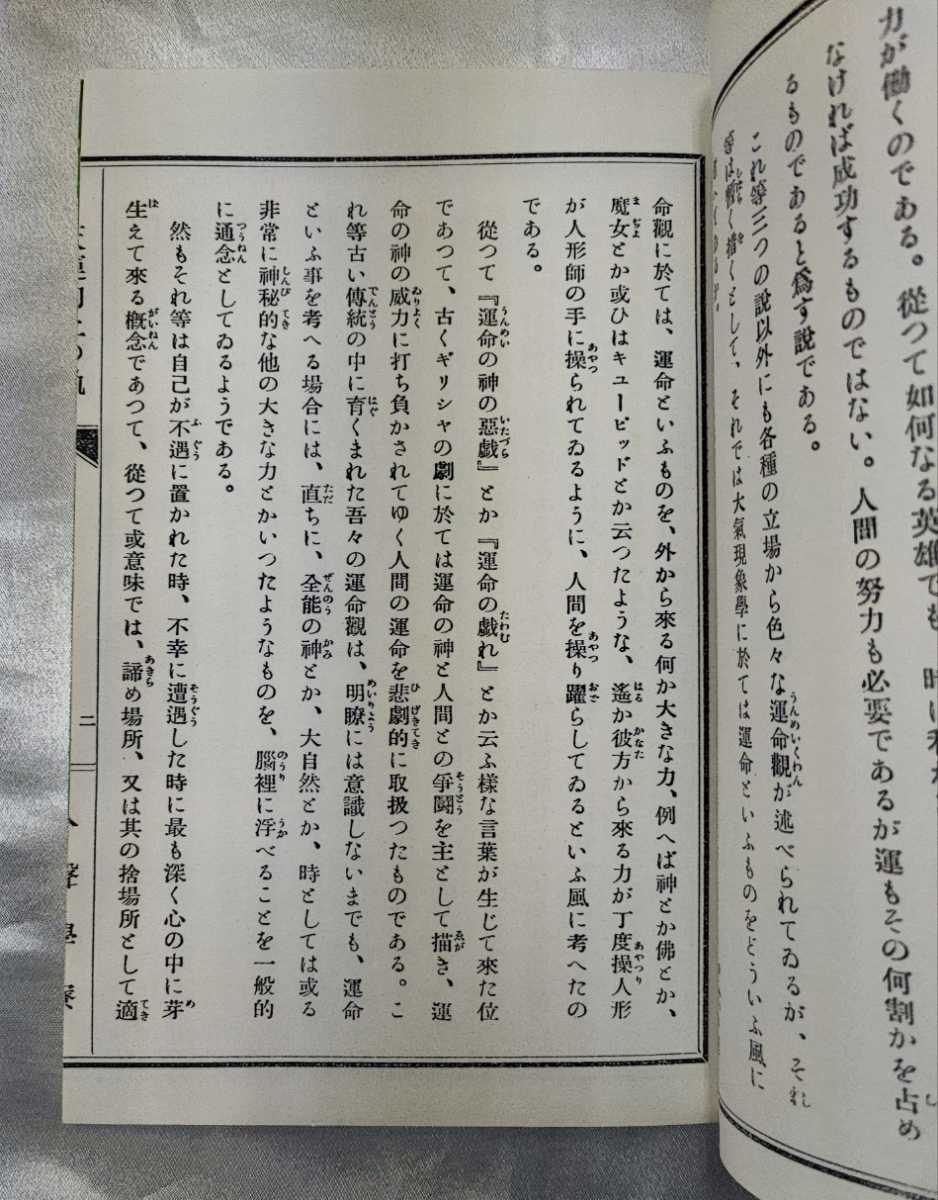 力が働くのである。從つて如何なる英雄でも、時に
なければ成功するものではない。人間の努力も必要であるが運もその何割かを占め
るものであると爲す說である。
これ等三つの說以外にも各種の立場から色々な運命觀が述べられてゐるが、それ
として、それでは大氣現象學に於ては運命といふものをどういふ風に
命觀に於ては、運命といふものを、外から來る何か大きな力、例へば神とか佛とか、
魔女とか或ひはキューピッドとか云つたような、遙か彼方から來る力が丁度操人形
が人形師の手に操られてゐるように、人間を操り躍らしてゐるといふ風に考へたの
である。
從つて『運命の神の惡戲』とか『運命の戲れ』とか云ふ樣な言葉が生じて來た位
であつて、古くギリシャの劇に於ては運命の神と人間との爭鬪を主として描き、運
命の神の威力に打ち負かされてゆく人間の運命を悲劇的に取扱つたものである。こ
れ等古い傳統の中に育くまれた吾々の運命觀は、明瞭には意識しないまでも、運命
といふ事を考へる場合には、直ちに、全能の神とか、大自然とか、時としては或る
非常に神秘的な他の大きな力とかいつたようなものを、腦裡に浮べることを一般的
に通念としてゐるようである。
然もそれ等は自己が不遇に置かれた時、不幸に遭遇した時に最も深く心の中に芽
生えて來る槪念であつて、從つて或意味では、諦め場所、又は其の捨場所として適
二